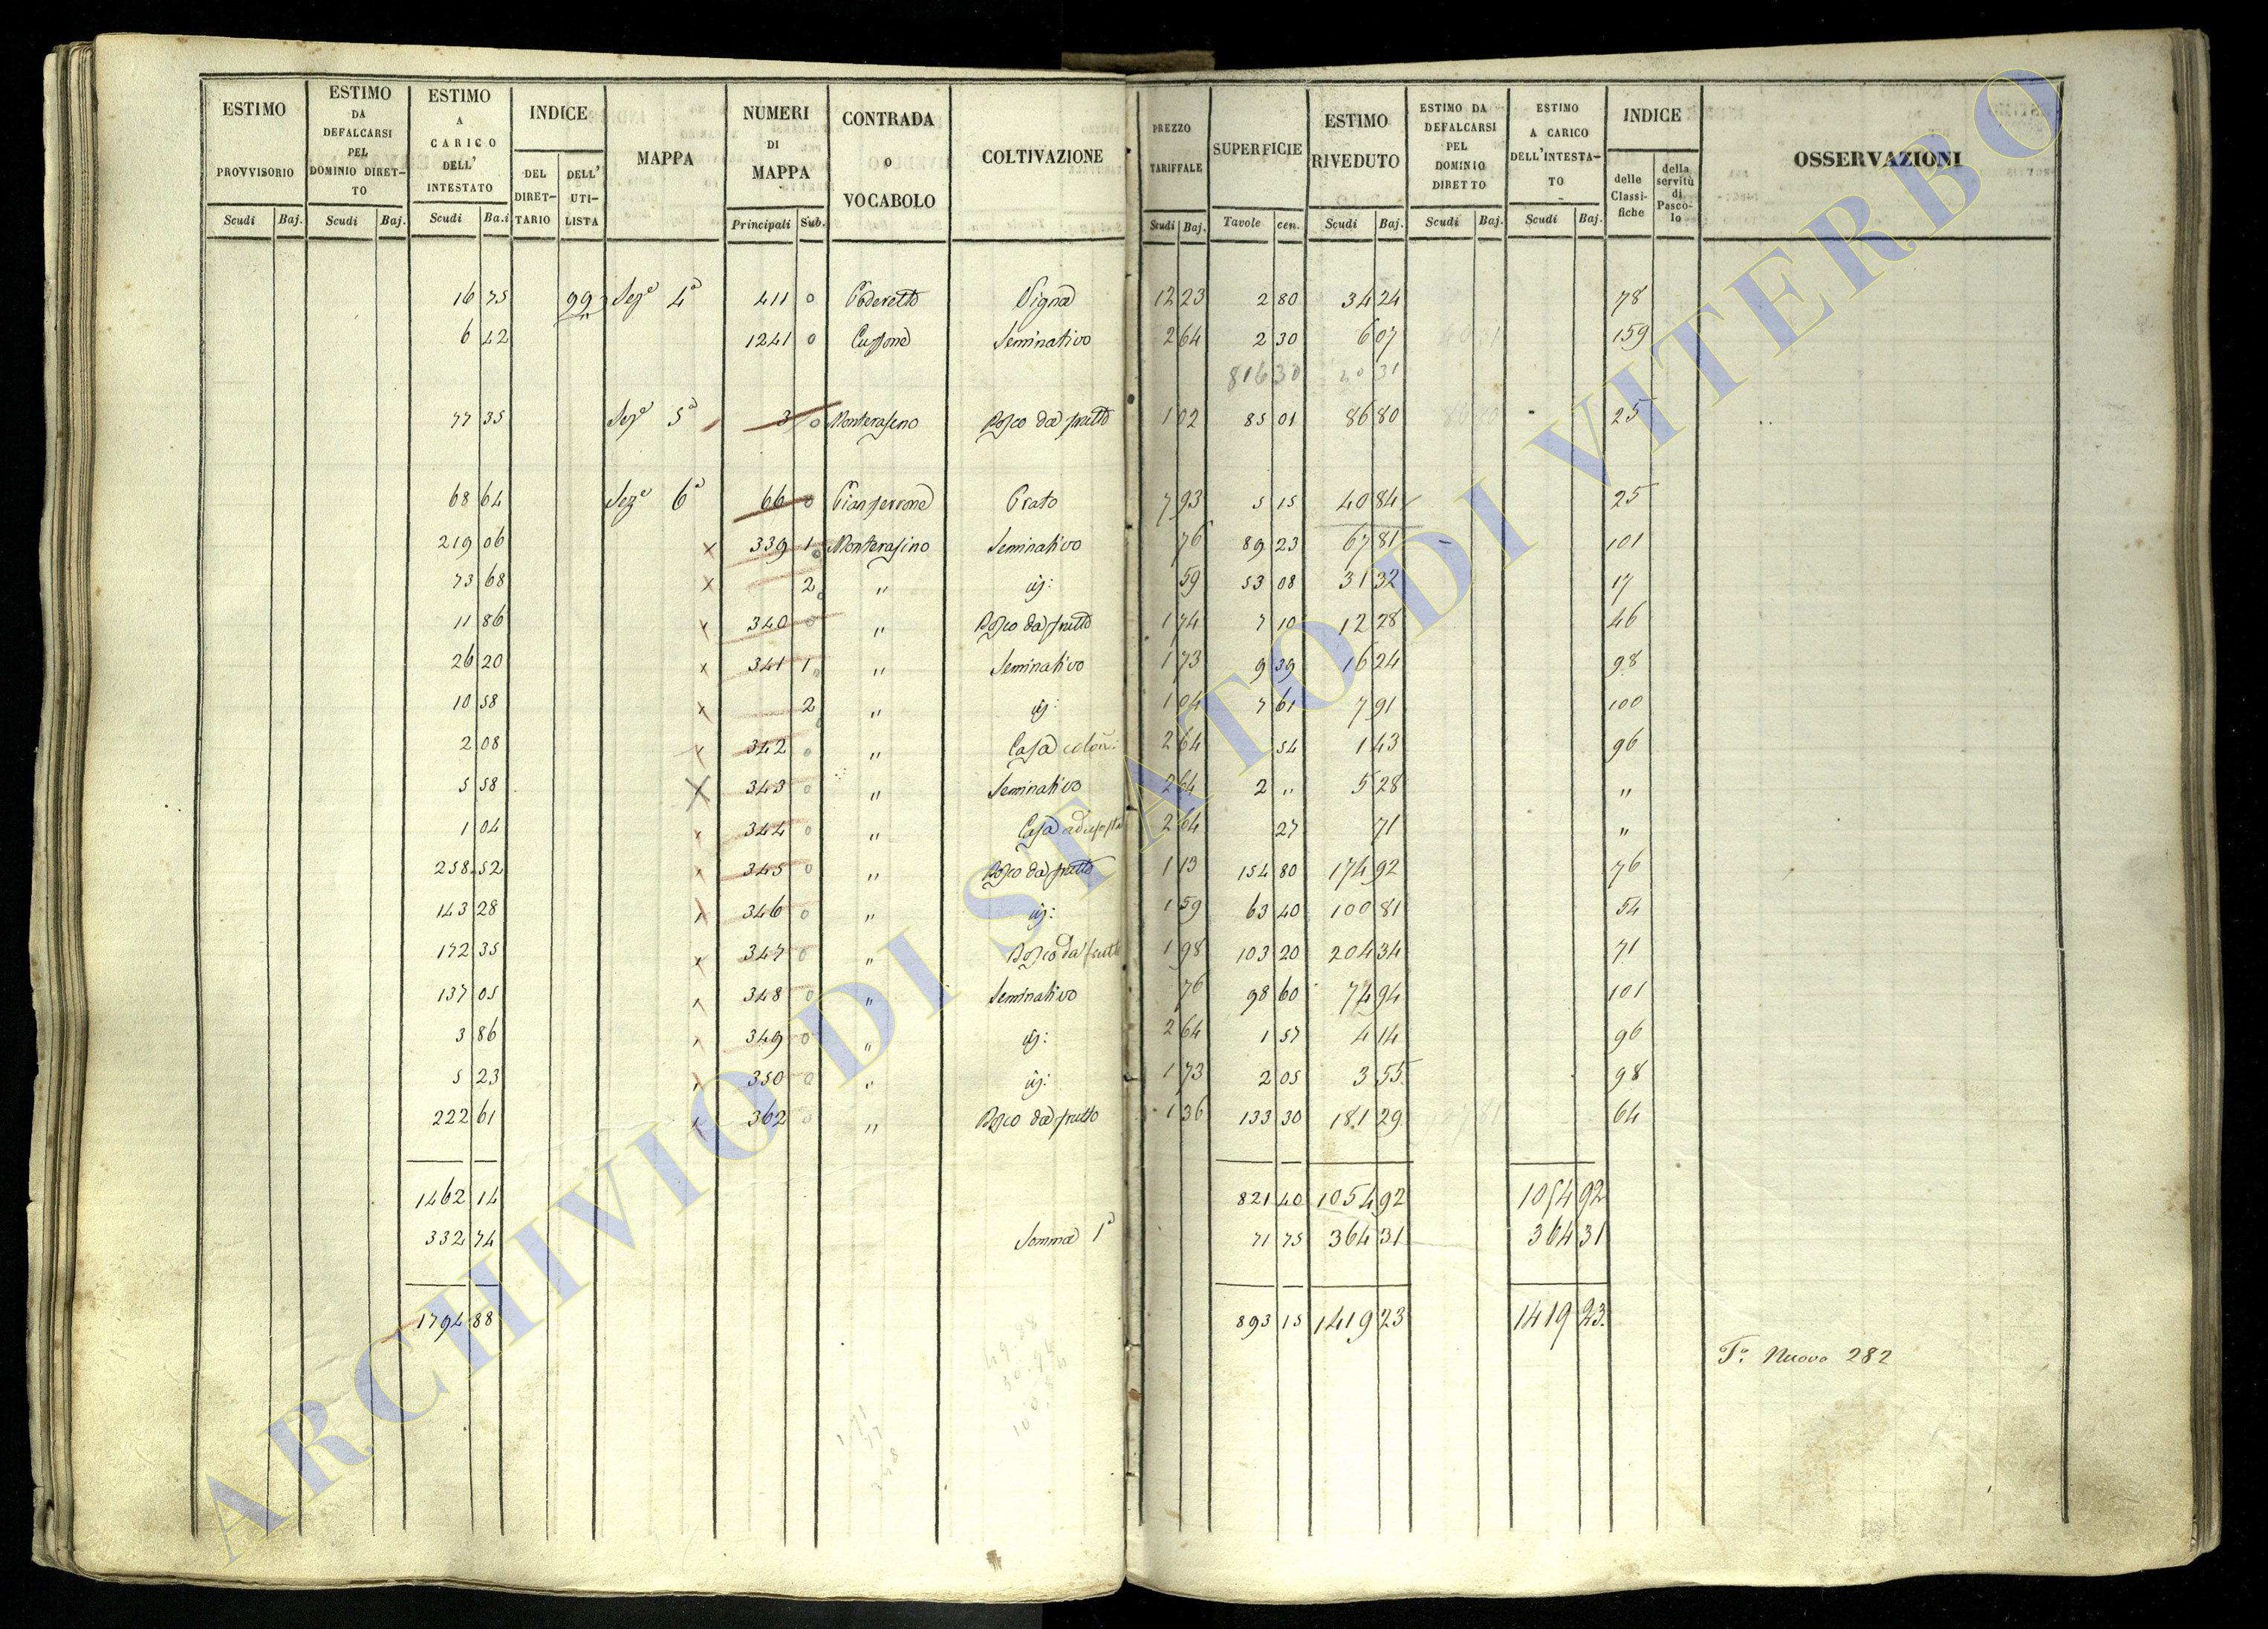 ESTIMO PROVVISORIO
Scudi Baj.
ESTIMO DA DEFALCARSI PEL DOMINIO DIRETTO
Scudi Baj.
ESTIMO A CARICO DELL' INTESTATO
Scudi Ba.i
INDICE
DEL DIRETTARIO
DELL' UTILISTA
MAPPA
NUMERI DI MAPPA
Principali Sub.
CONTRADA o VOCABOLO
COLTIVAZIONE
PREZZO TARIFFALE
Scudi Baj.
SUPERFICIE
Tavole cen.
ESTIMO RIVEDUTO
Scudi Baj.
ESTIMO DA DEFALCARSI PEL DOMINIO DIRETTO
Scudi Baj.
ESTIMO A CARICO DELL'INTESTATO
Scudi Baj.
INDICE
delle Classifiche
della servitù di Pascolo
OSSERVAZIONI
16 75 Seze 4a 411 0 Poderetto Vigna 12 23 2 80 34 24 78
6 42 1241 0 Seminativo 2 64 2 30 6 07 159
816 30 31
77 35 Seze 5a 3 0 Monterasino Bosco da frutto 1 02 85 01 86 80 25
68 64 Seze 6a 66 0 Prato 7 93 5 15 40 84 25
219 06 x 339 1 Monterasino Seminativo 76 89 23 67 81 101
73 68 x 2 " id: 59 53 08 31 32 17
11 86 x 340 0 " Bosco da frutto 1 74 7 10 12 28 46
26 20 x 341 1 " Seminativo 1 73 9 39 16 24 98
10 58 x 2 " id: 1 04 7 61 7 91 100
2 08 x 342 0 " Casa colon: 2 64 54 1 43 96
5 58 x 343 0 " Seminativo 2 64 2 " 5 28 "
1 04 x 344 0 " Casa 2 64 27 71 "
258 52 x 345 0 " Bosco da frutto 1 13 154 80 174 92 76
143 28 x 346 0 " id: 1 59 63 40 100 81 54
172 35 x 347 0 " Bosco da frutto 1 98 103 20 204 34 71
137 05 x 348 0 " Seminativo 76 98 60 74 94 101
3 86 x 349 0 " id: 2 64 1 57 4 14 96
5 23 x 350 0 " id: 1 73 2 05 3 55 98
222 61 x 362 0 " Bosco da frutto 1 36 133 30 181 29 64
1462 14 821 40 1054 92 1054 92
332 74 Somma 1a 71 75 364 31 364 31
1794 88 893 15 1419 23 1419 23
Fo: Nuovo 282
ARCHIVIO DI STATO DI VITERBO